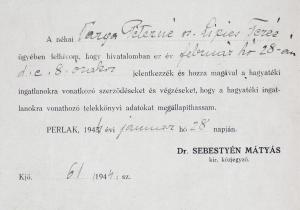 A néhai Varga Péterné sz. Lipics Teréz
ügyében felhivom, hogy hivatalomban ez év február hó 28-án
d. e. 8 órakor jelentkezzék és hozza magával a hagyatéki
ingatlanokra vonatkozó szerződéseket és végzéseket, hogy a hagyatéki ingat-
lanokra vonatkozó telekkönyvi adatokat megállapithassam.
PERLAK, 1944 évi január hó 28 napján.
Dr. SEBESTYÉN MÁTYÁS
kir. közjegyző.
Kjő. 61/1944. sz.